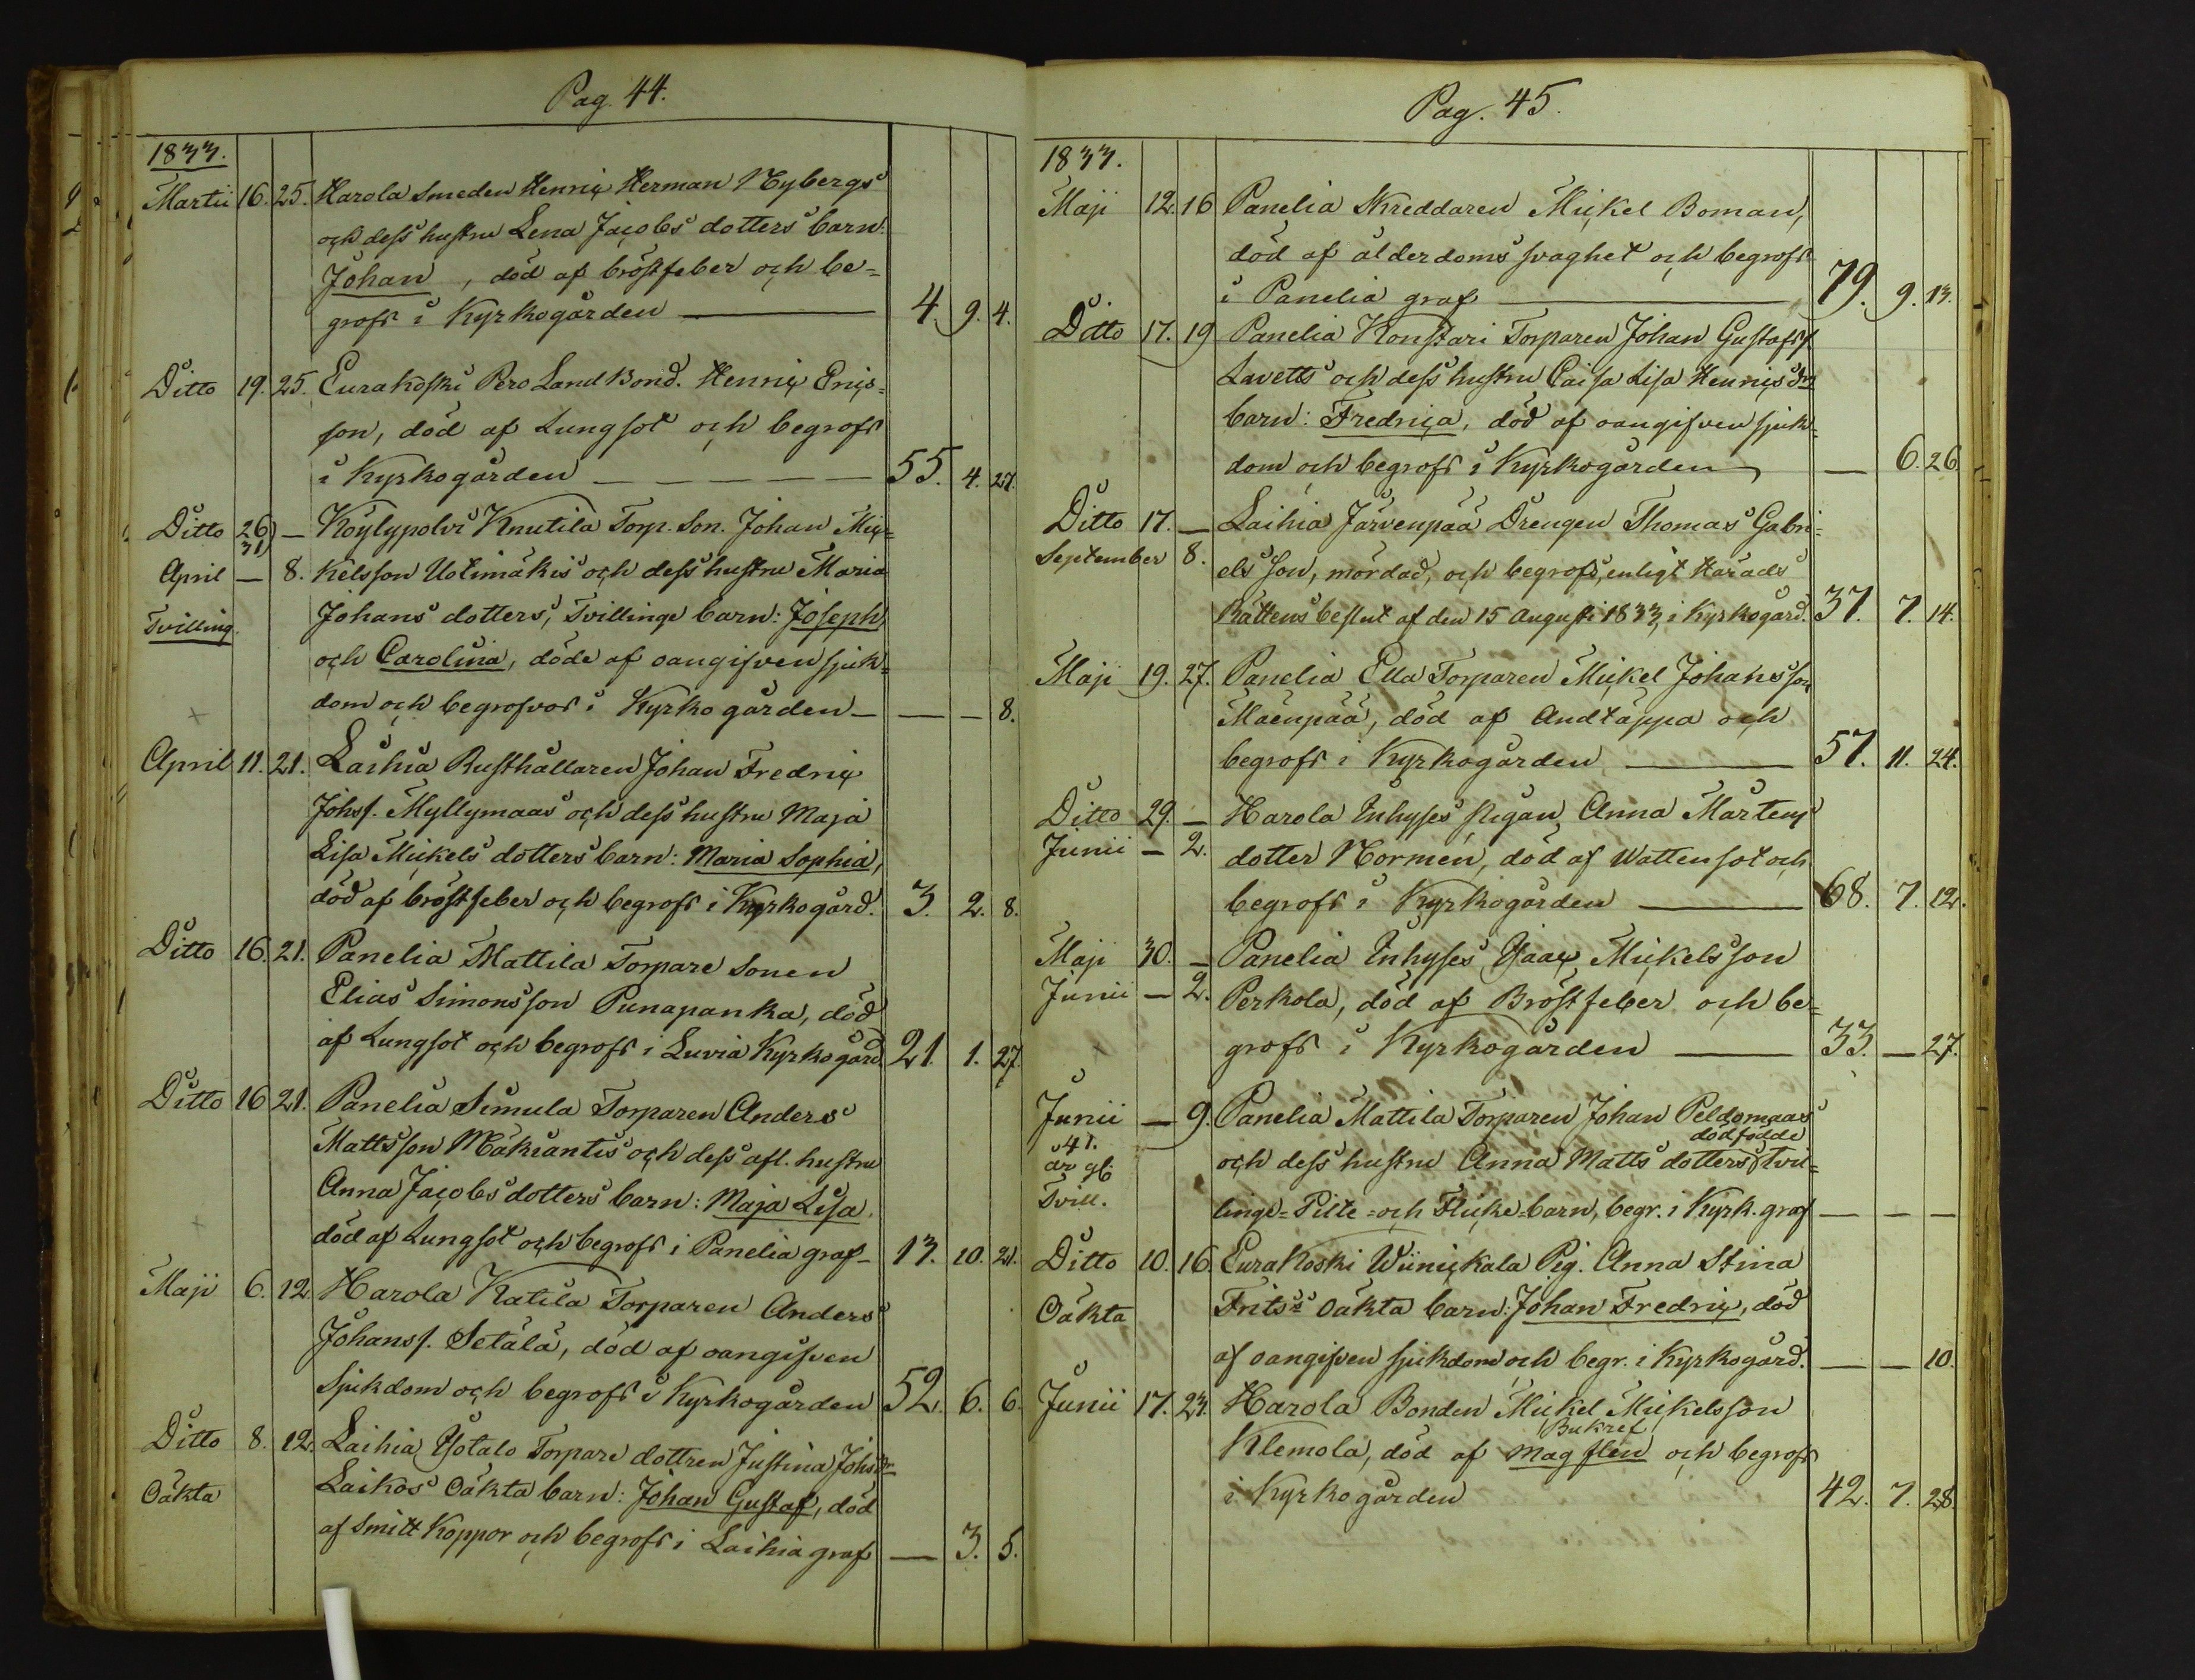 Pag. 44.
1833.
Martii 16. 25. Harola Smeden Henric Herman Nybergs
och dess hustru Lena Jacobs dotters barn:
Johan, död af bröstfeber och be=
grofs i Kyrkogården 4. 9. 4.
Ditto 19. 25. Eurakoski Pero Land Bond. Henric Eric=
son, död af Lungsot och begrofs
i Kyrkogården 55. 4. 27.
Ditto 26 — Köylypolvi Knutila Torp. Son. Johan Mic=
31
April — 8. kelsson Uotimäkis och dess hustru Maria
Tvilling. Johans dotters, Tvillinge barn: Joseph
och Carolina, döde af oangifven sjuk=
dom och begrofvos i Kyrkogården — — — 8.
April 11. 21. Laihia Rusthållaren Johan Fredric
Johss. Myllymaas och dess hustru Maja
Lisa Mickels dotters barn: Maria Sophia,
död af bröstfeber och begrofs i Kyrkogård. 3. 2. 8.
Ditto 16. 21. Panelia Mattila Torpare Sonen
Elias Simonsson Punapanka, död
af Lungsot och begrofs i Luvia Kyrkogård 21. 1. 27.
Ditto 16 21. Panelia Simula Torparen Anders
Mattsson Mäkiäntis och dess afl. hustru
Anna Jacobs dotters barn: Maja Lisa.
död af Lungsot och begrofs i Panelia graf— 13. 10. 21.
Maji 6. 12. Harola Katila Torparen Anders
Johanss. Setälä, död af oangifven
Sjukdom och begrofs i Kyrkogården 52. 6. 6.
Ditto 8. 12. Laihia Ysotalo Torpare dottren Justina Johsdr
Oäkta Laikos Oäkta barn: Johan Gustaf, död
af Smitt Koppor och begrofs i Laihia graf — 3. 5.
Pag. 45.
1833.
Maji 12. 16 Panelia Skreddaren Mickel Boman,
död af ålderdoms svaghet och begrofs
i Panelia graf 79. 9. 13.
Ditto 17. 19 Panelia Konstari Torparen Johan Gustafss.
Lavetts och dess hustru Caisa Lisa Henricsdr
barn: Fredrica, död af oangifven sjuk=
dom och begrofs i Kyrkogården — 6. 26
Ditto 17. — Laihia Järvenpää Drengen Thomas Gabri=
September 8. els son, mördad, och begrofs, enligt Härads
Rättens beslut af den 15 Augusti 1833, i Kyrkogård. 37. 7. 14.
Maji 19. 27. Panelia Ella Torparen Mickel Johansson
Mäenpää, död af Andtäppa och
begrofs i Kyrkogården 57. 11. 24.
Ditto 29. — Harola Inhyses Pigan Anna Mårtens
Junii — 2. dotter Normén, död af Wattensot och
begrofs i Kyrkogården 68. 7. 12.
Maji 30. — Panelia Inhyses Ysaac Mickelsson
Junii — 2. Perkola, död af Bröstfeber och be=
grofs i Kyrkogården 33. — 27.
Junii — 9. Panelia Mattila Torparen Johan Peldomaas
41. dödfödde
år gl. och dess hustru Anna Matts dotters tvil=
Tvill. linge=Pilte=och Flicke=barn, begr. i Kyrk. graf — — —
Ditto 10. 16. Eurakoski Wiinickala Pig. Anna Stina
Oäkta Fritss Oäkta barn: Johan Fredric, död
af oangifven sjukdom och begr. i Kyrkogård. — — 10.
Junii 17. 23. Harola Bonden Mickel Mickelsson
Bukref
Klemola, död af Magflen och begrofs
i Kyrkogården 42. 7. 28.